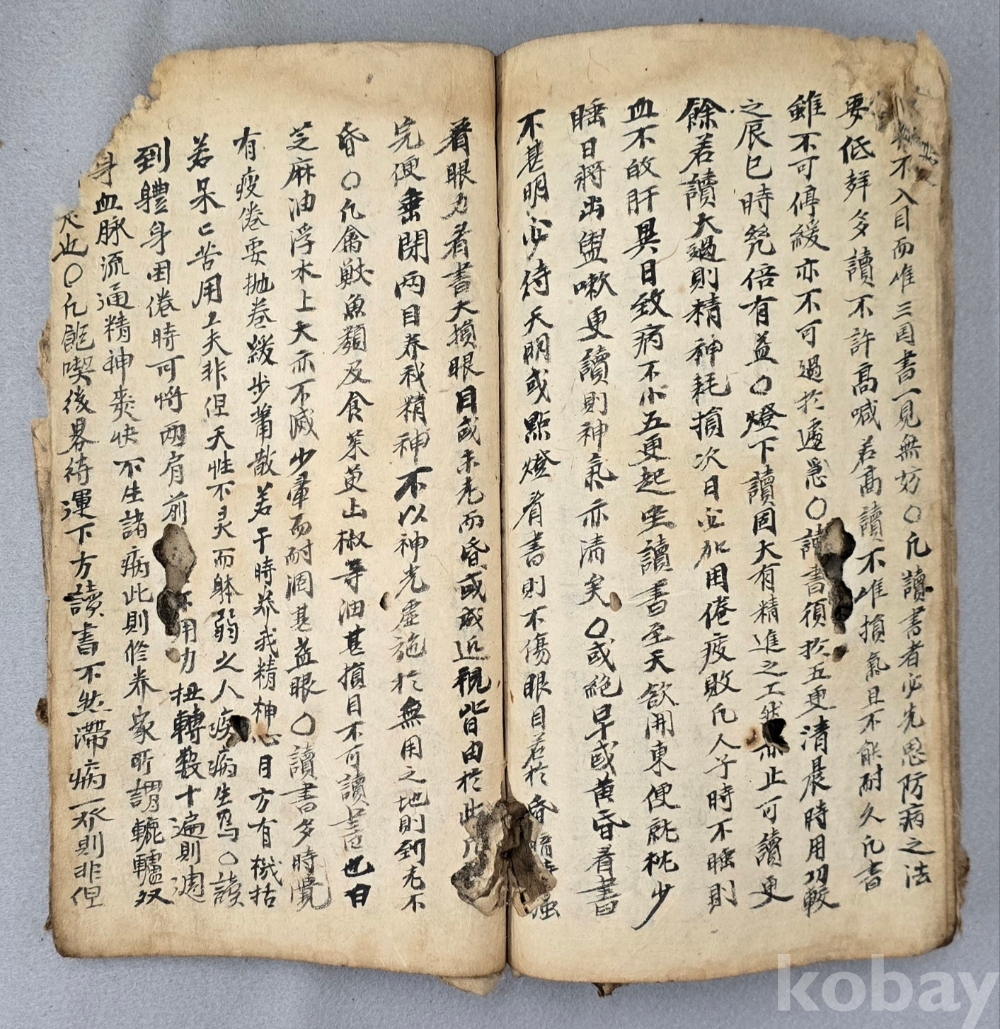 不入目而唯三国書一見無妨〇凡讀書者必先思防病之法
要低聲多讀不許高喊若高讀不唯損氣且不能耐久凡書
雖不可停緩亦不可過於遽急〇讀書須於五更清晨時用功較
之辰巳時凭倍有益〇燈下讀固大有精進之工然亦止可讀更
餘若讀大過則精神耗損次日必加用倦疲敗凡人子時不睡則
血不皈肝異日致病不小五更起坐讀書至天欲開東便就枕少
睡日將出盥嗽更讀則神氣亦清矣〇或絕早或黃昏看書
不甚明必待天明或點燈看書則不傷眼目若於昏暗強
着眼力看書大損眼目或未老而昏或成近視皆由於此
完便垂閉兩目养我精神不以神光虛施於無用之地則到老不
昏〇凡禽獸魚類及食菜茰上椒等油甚損目不可讀書也曰
芝麻油浮水上大亦不减少暈而耐涸甚益眼〇讀書多時覺
有疲倦要抛卷緩步蕭散若干時养我精神心目方有機括
若呆呆苦用工夫非但天性不灵而躰弱之人疾病生焉〇讀
到體身困倦時可將兩肩前不用力扭轉数十遍則週
身血脉流通精神爽快不生諸病此則修养家所謂轆轤双
也〇凡飽喫後畧待運下方讀書不然滯病一不則非但
kobay